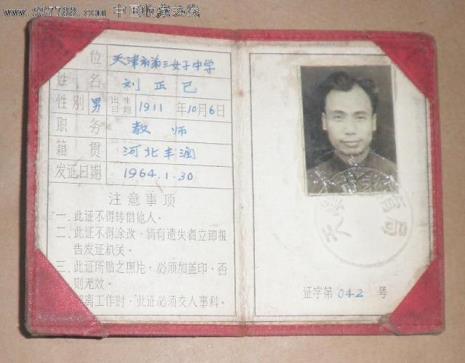 位 天津市第三女子中学
姓名 刘正已
性别 男 出生日期 1911年10月6日
职务 教师
籍贯 河北丰润
发证日期 1964.1.30
注意事项
一、此证不得转借他人。
二、此证不得涂改,倘有遗失者立即报
告发证机关。
三、此证所贴之照片,必须加盖印,否
则无效。
离工作时,此证必须交人事科。
证字第 042 号